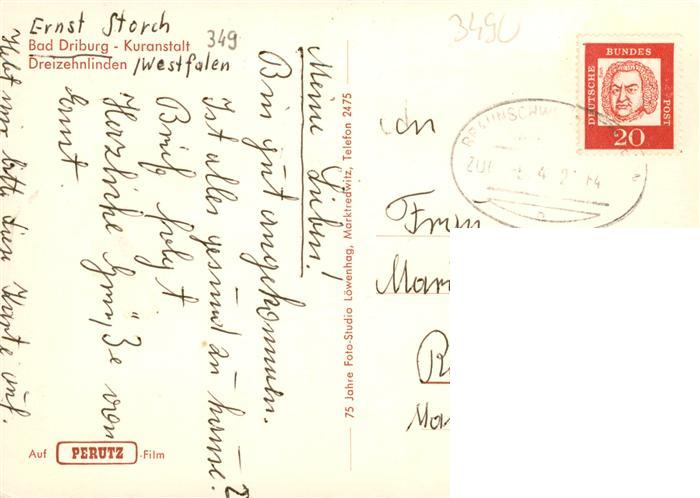 Ernst Storch
349
Bad Driburg - Kuranstalt
Dreizehnlinden /Westfalen
Meine Lieben!
Bin gut angekommen.
Ist alles gesund zu hause.?
Brief folgt
Herzliche Grüße von
Ernst.
Hebt mir bitte diese Karte auf.
Auf PERUTZ -Film
75 Jahre Foto-Studio Löwenhag, Marktredwitz, Telefon 2475
3490
DEUTSCHE BUNDES POST
20
An